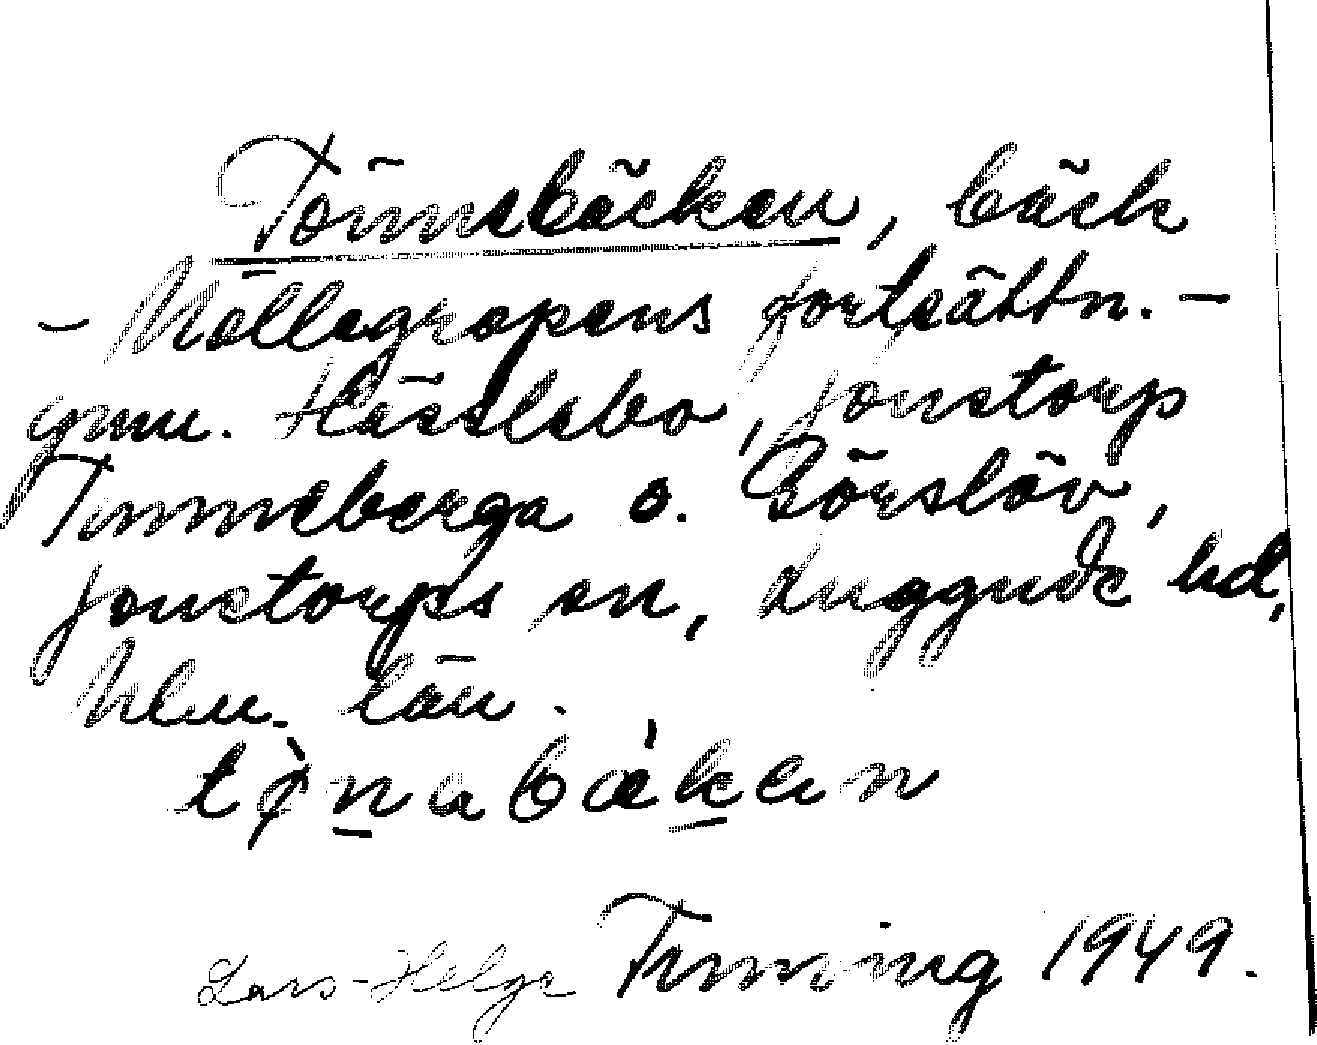 Tönnebäcken, bäck
- Möllegropens fortsättn. -
gnm. Hässlebo, Jonstorp
Tunneberga o. Görslöv,
Jonstorps sn, Luggude hd,
Mlm. län.
tø̀nabǽkan
Lars-Helge Tunving 1949.